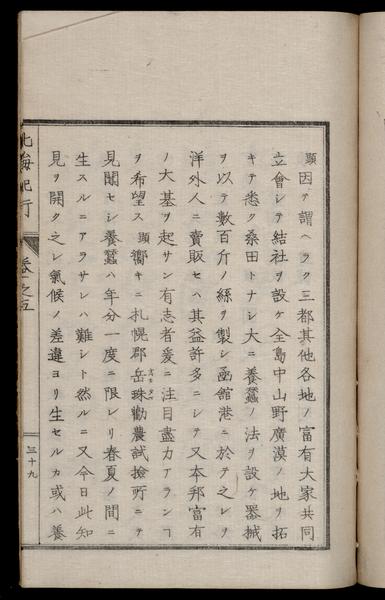 顕因テ謂ヘラク三都其他各地ノ富有大家共同
立會シテ結社ヲ設ケ全島中山野廣漠ノ地ヲ拓
キテ悉ク桑田トナシ大ニ養蠶ノ法ヲ設ケ器械
ヲ以テ數百斤ノ絲ヲ製シ函館港ニ於テ之レヲ
洋外人ニ賣販セハ其益許多ニシテ又本邦富有
ノ大基ヲ起サン有志者爰ニ注目盡力アランヿ
ヲ希望ス顕嚮キニ札幌郡岳珠勸農試撿所ニテ
見聞セシ養蠶ハ年分一度ニ限レリ春夏ノ間ニ
生スルニアラサレハ難シト然ルニ又今日此知
見ヲ開ク之レ氣候ノ差違ヨリ生セルカ或ハ養
北海紀行 巻之五
三十九